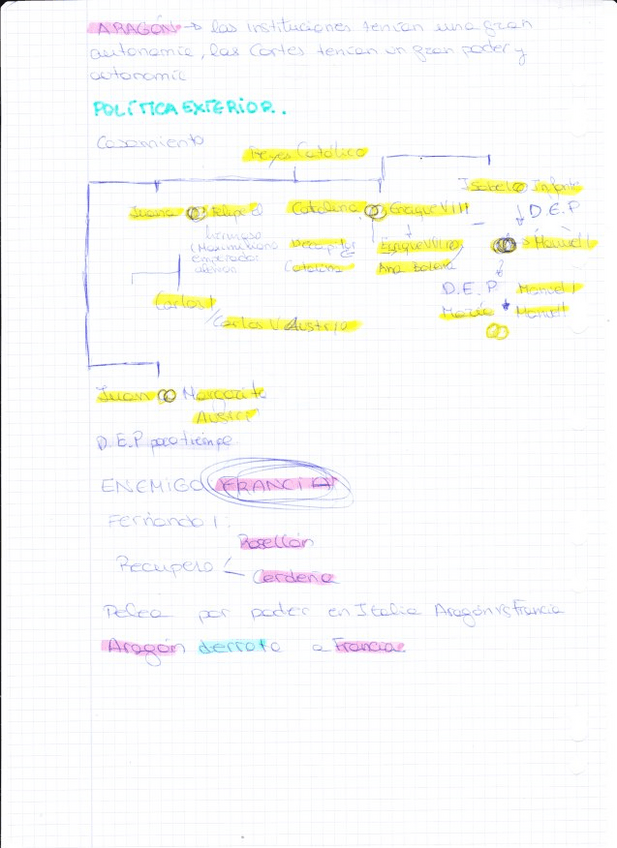 ARAGÓN → las instituciones tenían una gran
autonomía, las Cortes tenían un gran poder y
autonomía
POLÍTICA EXTERIOR.
Casamiento
Reyes Católico
Isabel Infante
Juana Felipe
Catalina Enrique VIII
D.E.P
hermoso
(Maximiliano
emperador
Catalina
Enrique VIII
Ana Bolena
Manuel I
D.E.P Manuel I
María Manuel
Carlos I
/Carlos V Austria
Juan Margarita
Austri
D.E.P poco tiempo
ENEMIGO FRANCIA
Fernando I:
Rosellón
Recupero
Cerdeña
Pelea por poder en Italia Aragón vs Francia
Aragón derrota a Francia.